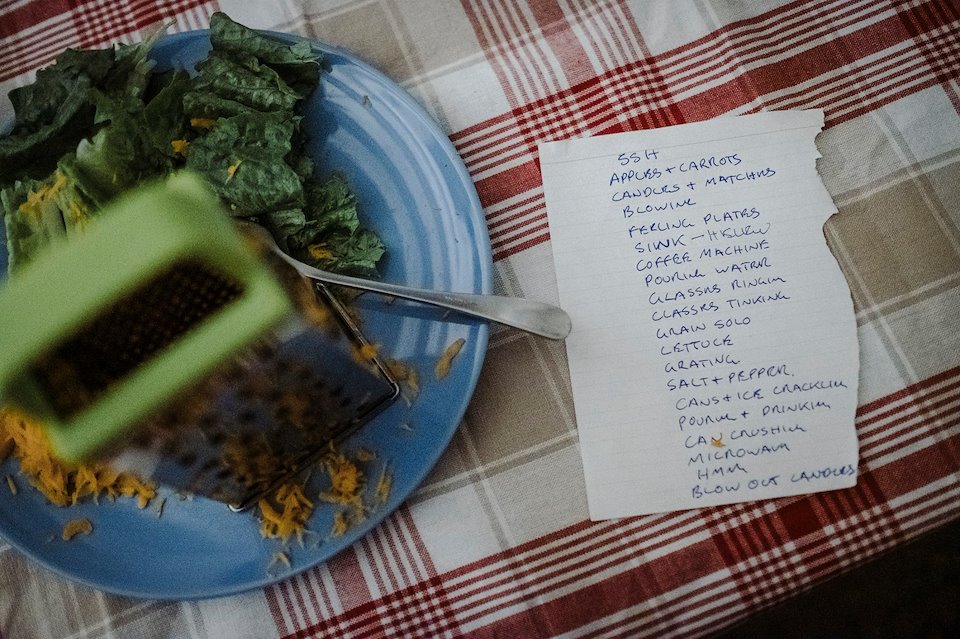 SSH
APPLES + CARROTS
CANDLES + MATCHES
BLOWING
FEELING PLATES
SINK —
COFFEE MACHINE
POURING WATER
GLASSES RINGIN
GLASSES TINKING
GRAIN SOLO
LETTUCE
GRATING
SALT + PEPPER.
CANS + ICE CRACKLIN
POURIN + DRINKIN
CAN CRUSHIN
MICROWAVE
HMM
BLOW OUT CANDLES